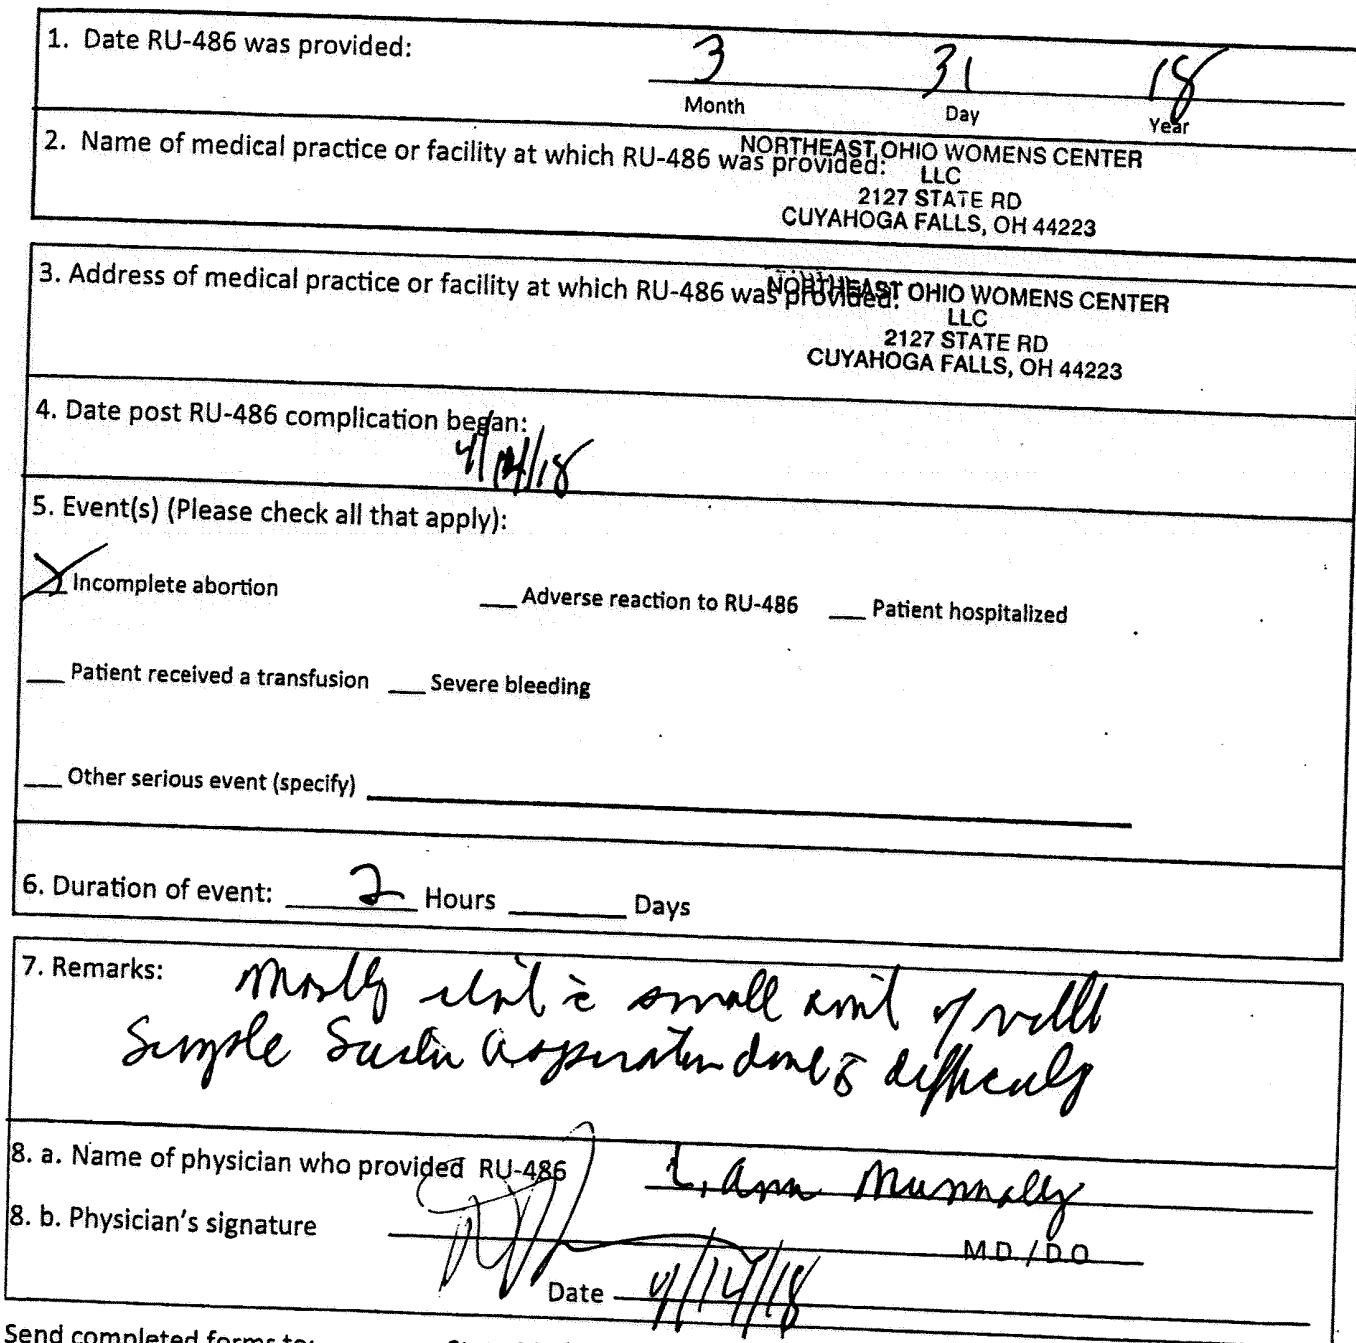 1. Date RU-486 was provided: 3 31 18
Month Day Year
2. Name of medical practice or facility at which RU-486 was provided: NORTHEAST OHIO WOMENS CENTER
LLC
2127 STATE RD
CUYAHOGA FALLS, OH 44223
3. Address of medical practice or facility at which RU-486 was provided: NORTHEAST OHIO WOMENS CENTER
LLC
2127 STATE RD
CUYAHOGA FALLS, OH 44223
4. Date post RU-486 complication began:
4/14/18
5. Event(s) (Please check all that apply):
X Incomplete abortion __ Adverse reaction to RU-486 __ Patient hospitalized
__ Patient received a transfusion __ Severe bleeding
__ Other serious event (specify)
6. Duration of event: 2 Hours ____ Days
7. Remarks: Mostly small of
Simple Suction aspiration done difficulty
8. a. Name of physician who provided RU-486 Ann
8. b. Physician's signature
M.D. / D.O
Date 4/14/18
Send completed forms to: